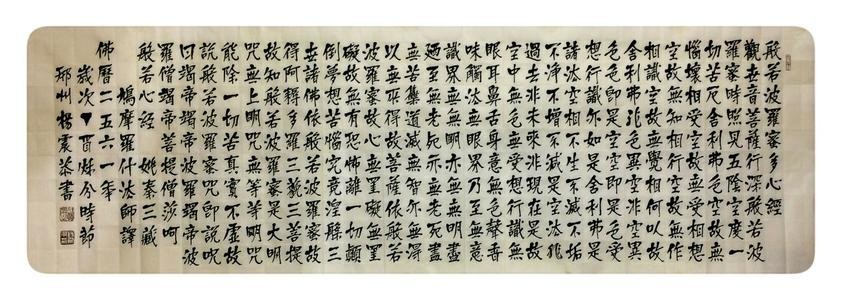 般若波羅蜜多心經
觀世音菩薩行深般若波
羅蜜時照見五陰空度一
切苦厄舍利弗色空故無
惱壞相受空故無受相想
空故無知相行空故無作
相識空故無覺相何以故
舍利弗非色異空非空異
色色即是空空即是色受
想行識亦如是舍利弗是
諸法空相不生不滅不垢
不淨不增不減是空法非
過去非未來非現在是故
空中無色無受想行識無
眼耳鼻舌身意無色聲香
味觸法無眼界乃至無意
識界無無明亦無無明盡
乃至無老死亦無老死盡
無苦集滅道無智亦無得
以無所得故菩薩依般若
波羅蜜故心無罣礙無罣
礙故無有恐怖離一切顛
倒夢想苦惱究竟涅槃三
世諸佛依般若波羅蜜故
得阿耨多羅三藐三菩提
故知般若波羅蜜是大明
咒無上明咒無等等明咒
能除一切苦真實不虛故
說般若波羅蜜咒即說咒
曰竭帝竭帝波羅竭帝波
羅僧竭帝菩提僧莎呵
般若心經 姚秦三藏
鳩摩羅什法師譯
佛曆二五六一年
歲次丁酉秋分時節
邢州楊震恭書